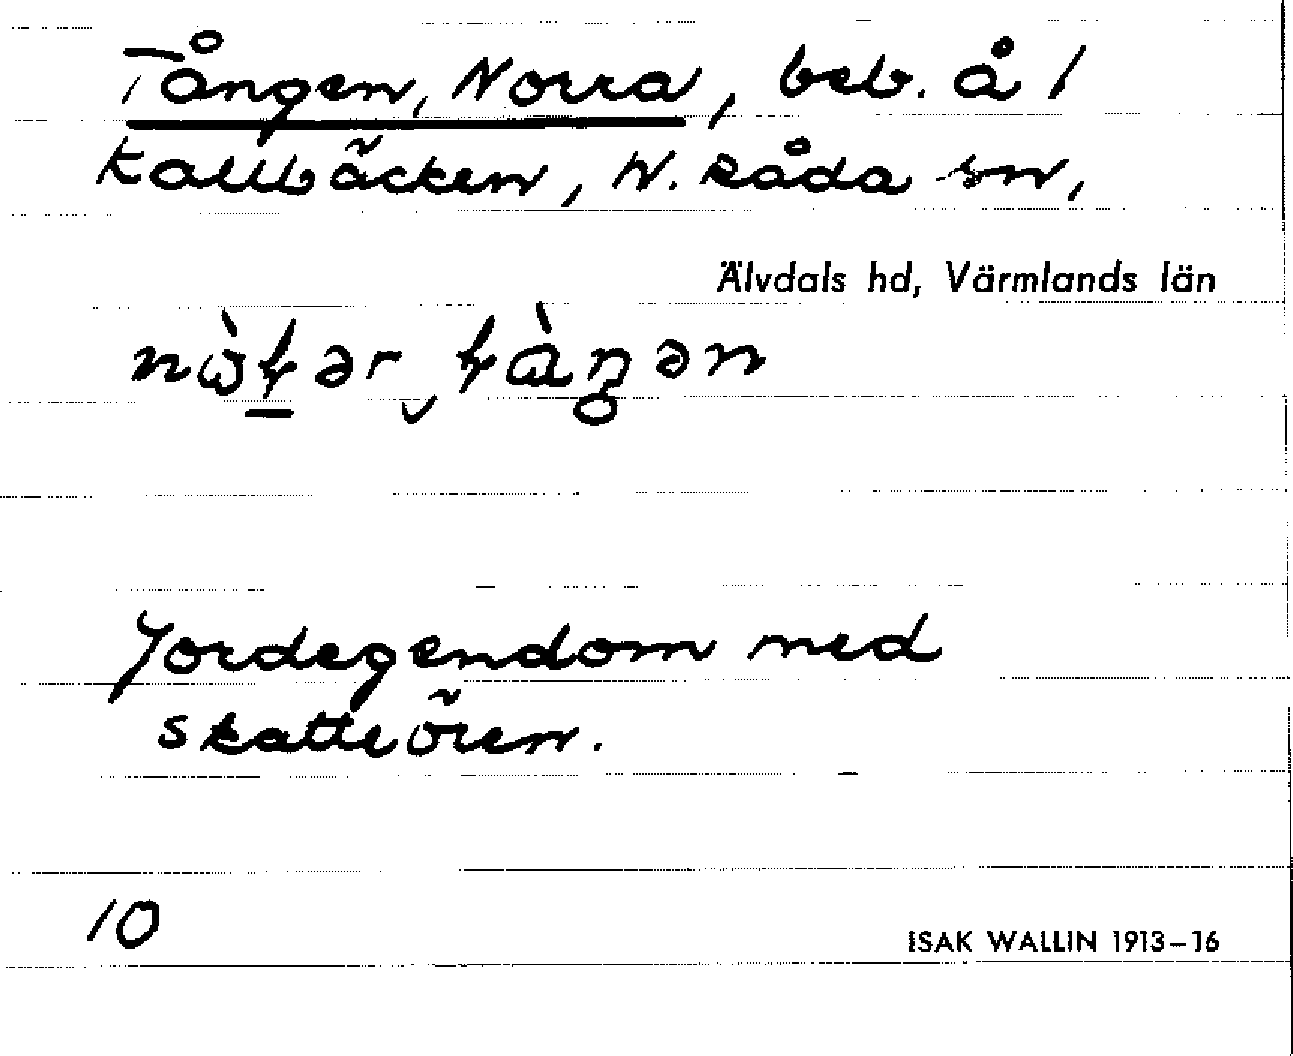 Tången, Norra, beb. å 1
Kallbäcken, N. Råda sn,
Älvdals hd, Värmlands län
Jordegendom med
skatteören.
10
ISAK WALLIN 1913–16